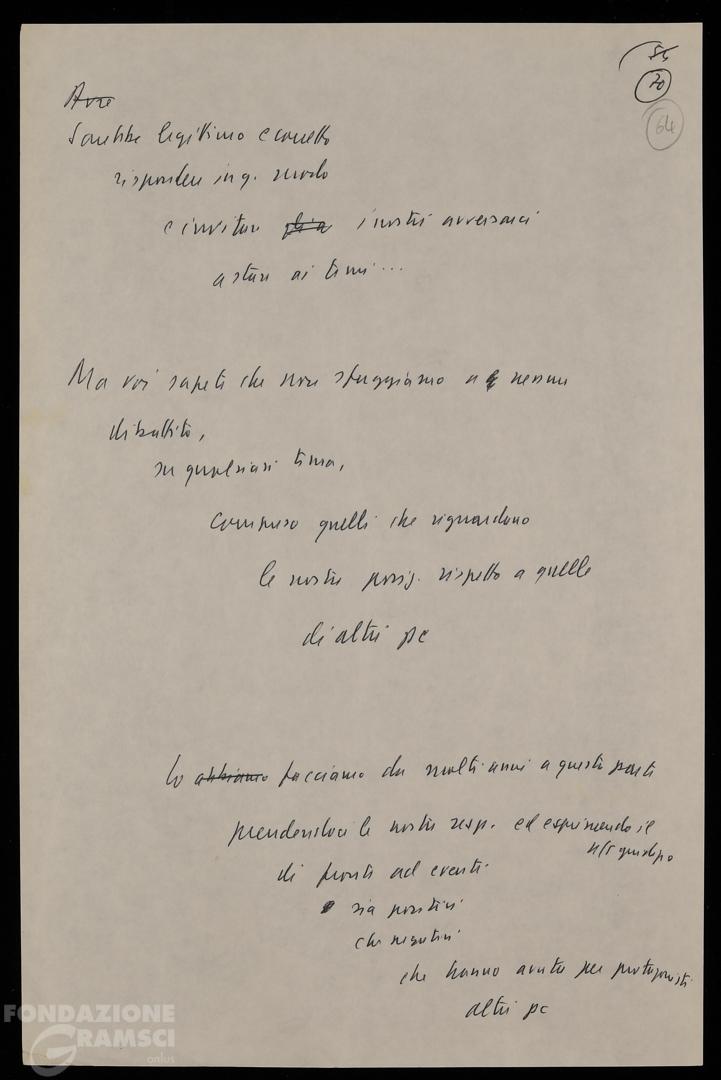 54
20
64
Avre
Sarebbe legittimo e corretto
rispondere in q. modo
e invitare gli a i nostri avversari
a stare ai temi...
Ma voi sapete che non sfuggiamo a nessun
dibattito,
su qualsiasi tema,
compreso quelli che riguardano
le nostre posiz. rispetto a quelle
di altri pc
Lo abbiamo facciamo da molti anni a questa parte
prendendoci le nostre resp. ed esprimendo il
n/s giudizio
di fronte ad eventi
sia positivi
che negativi
che hanno avuto per protagonisti
altri pc
FONDAZIONE
GRAMSCI
onlus